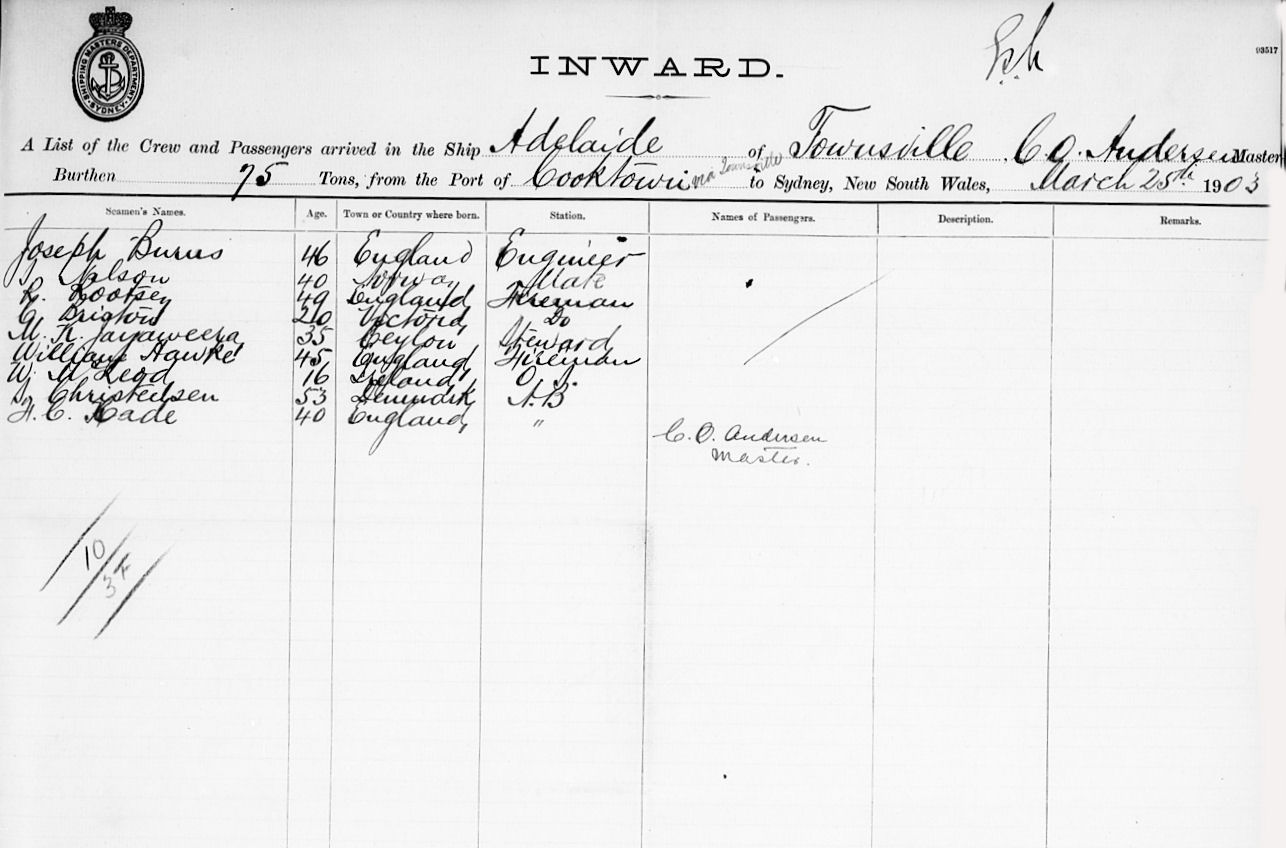 SHIPPING MASTERS DEPARTMENT
SYDNEY
93517
INWARD.
A List of the Crew and Passengers arrived in the Ship Adelaide of Townsville C. O. Andersen Master
Burthen 75 Tons, from the Port of Cooktown via Townsville to Sydney, New South Wales, March 25th 1903
Seamen's Names. Age. Town or Country where born. Station. Names of Passengers. Description. Remarks.
Joseph Burns 46 England Engineer
Nelson 40 Norway Mate
R. Rootsey 49 England Fireman
Bristow 20 Victoria Do
M. K. Jayaweera 35 Ceylon Steward
William Hawke 45 England Fireman
W. McLeod 16 Ireland
Christensen 53 Denmark A.B
H. C. Kade 40 England "
C. O. Andersen
Master.
10
34